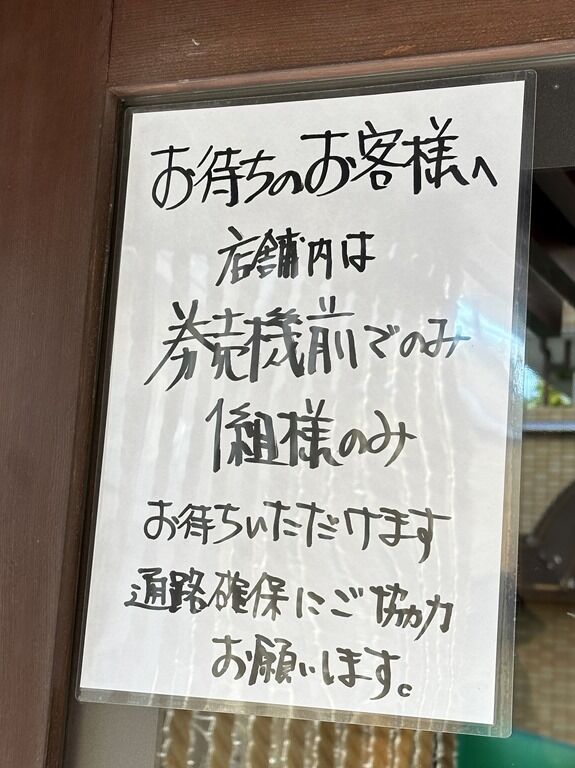 お待ちのお客様へ
店舗内は
券売機前でのみ
1組様のみ
お待ちいただけます
通路確保にご協力
お願いします。